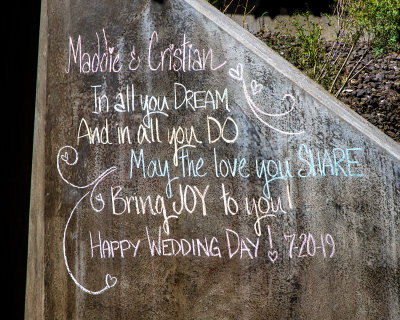 Maddie & Cristian
In all you DREAM
And in all you DO
May the love you SHARE
Bring JOY to you!
HAPPY WEDDING DAY! 7-20-19